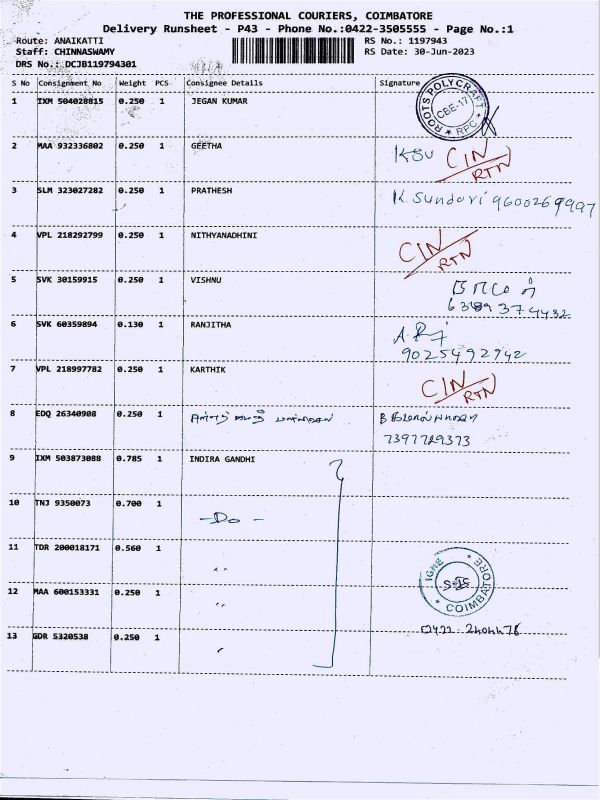 THE PROFESSIONAL COURIERS, COIMBATORE
Delivery Runsheet - P43 - Phone No.:0422-3505555 - Page No.:1
Route: ANAIKATTI RS No.: 1197943
Staff: CHINNASWAMY RS Date: 30-Jun-2023
DRS No.: DCJB119794301
S No Consignment No Weight PCS Consignee Details Signature
1 IXM 504028815 0.250 1 JEGAN KUMAR ROOTS POLYCRAFT CBE-17 * RPC *
2 MAA 932336802 0.250 1 GEETHA KSU CIN
RTN
3 SLM 323027282 0.250 1 PRATHESH K Sundari
4 VPL 218292799 0.250 1 NITHYANADHINI CIN
RTN
5 SVK 30159915 0.250 1 VISHNU
6 SVK 60359894 0.130 1 RANJITHA
9025492742
7 VPL 218997782 0.250 1 KARTHIK CIN
RTN
8 EDQ 26340908 0.250 1
7397729373
9 IXM 503873088 0.785 1 INDIRA GANDHI
10 TNJ 9350073 0.700 1 -Do-
11 TDR 200018171 0.560 1 "
12 MAA 600153331 0.250 1 " COIMBATORE
13 GDR 5320538 0.250 1 "